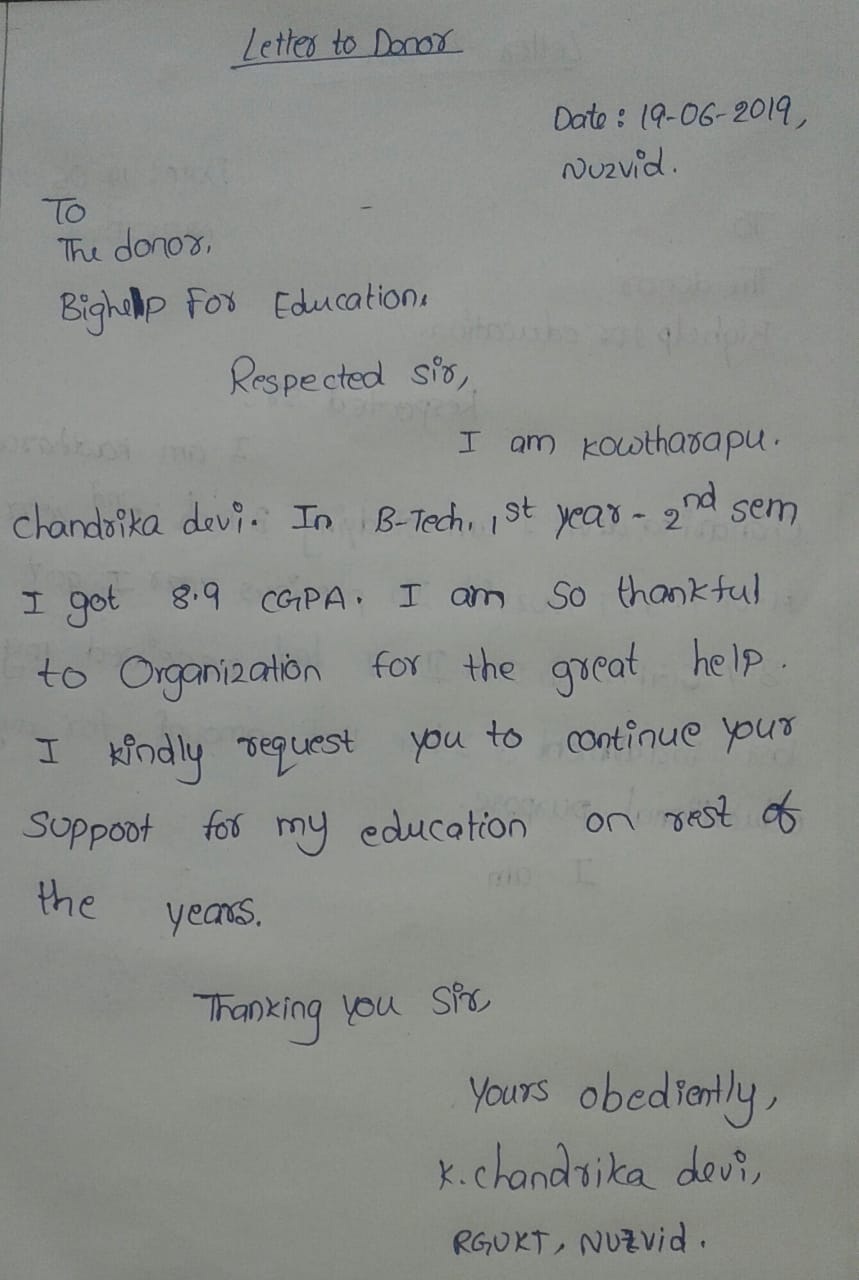 Letter to Donor
Date : 19-06-2019,
Nuzvid.
To
The donor,
Bighelp For Education.
Respected sir,
I am kowtharapu.
chandrika devi. In B-Tech, 1st year - 2nd sem
I got 8.9 CGPA. I am so thankful
to Organization for the great help.
I kindly request you to continue your
support for my education on rest of
the years.
Thanking you Sir,
Yours obediently,
K. chandrika devi,
RGUKT, NUZvid.